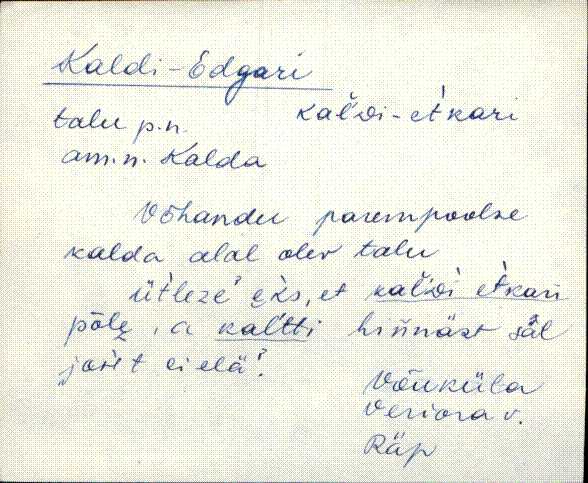 Kaldi-Edgari
kal̆di-ètkari
talu p.n.
am.n. Kalda
Võhandu parempoolse
kalda alal olev talu
ütleze' eks, et
põle, a kaltti hińnäst sääl
ei elä'.
Võuküla
Veriora v.
Räp